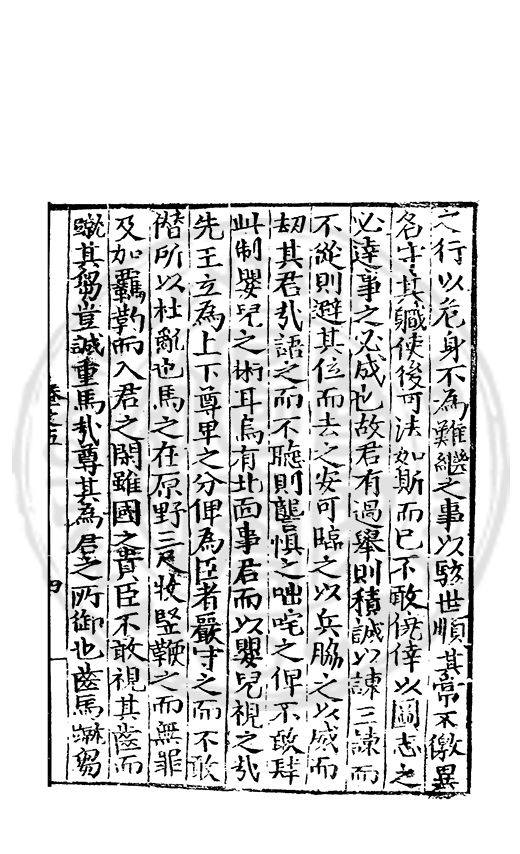 之行以危身不為難繼之事以駭世順其常不徼異
名守其職使後可法如斯而已不敢僥倖以圖志之
必達事之必成也故君有過舉則積誠以諫三諫而
不從則避其位而去之安可臨之以兵脇之以威而
刼其君㢤語之而不聽則讋慎之咄咤之俾不敢肆
此制嬰兒之術耳烏有北面事君而以嬰兒視之㢤
先王立為上下尊卑之分俾為臣者嚴守之而不敢
僣所以杜亂也馬之在原野三尺牧豎鞭之而無罪
及加羈靮而入君之閑雖國之貴臣不敢視其齒而
蹴其芻豈誠重馬㢤尊其為君之所御也齒馬蹴芻
卷之五
四